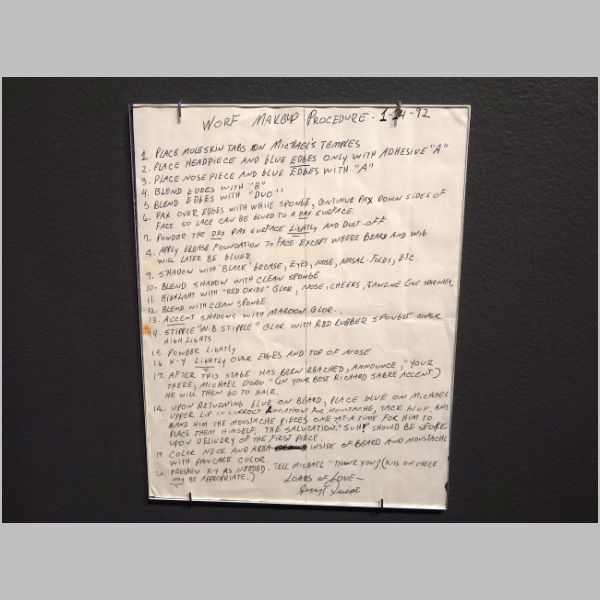 WORF MAKEUP PROCEDURE - 1-14-92
1. PLACE MOLESKIN TABS ON MICHAEL'S TEMPLES
2. PLACE HEADPIECE AND GLUE EDGES ONLY WITH ADHESIVE "A"
3. PLACE NOSE PIECE AND GLUE EDGES WITH "A"
4. BLEND EDGES WITH "B"
5. BLEND EDGES WITH "DUO"
6. PAX OVER EDGES WITH WHITE SPONGE, CONTINUE PAX DOWN SIDES OF
FACE SO LACE CAN BE GLUED TO A PAX SURFACE.
7. POWDER THE DRY PAX SURFACE LIGHTLY AND DUST-OFF
8. APPLY GREASE FOUNDATION TO FACE EXCEPT WHERE BEARD AND WIG
WILL LATER BE GLUED.
9. SHADOW WITH "BLACK" GREASE, EYES, NOSE, NASAL-FOLDS, ETC.
10. BLEND SHADOW WITH CLEAN SPONGE
11. HIGHLIGHT WITH "RED OXIDE" COLOR, NOSE, CHEEKS, JAWLINE
12. BLEND WITH CLEAN SPONGE
13. ACCENT SHADOWS WITH MAROON COLOR.
14. STIPPLE "W.B. STIPPLE" COLOR WITH RED RUBBER SPONGE OVER
HIGHLIGHTS
15. POWDER LIGHTLY
16. K-Y LIGHTLY OVER EDGES AND TOP OF NOSE
17. AFTER THIS STAGE HAS BEEN REACHED, ANNOUNCE, "YOUR
THERE, MICHAEL DORN." (IN YOUR BEST RICHARD SABRE ACCENT)
HE WILL THEN GO TO HAIR.
18. UPON RETURNING GLUE ON BEARD, PLACE GLUE ON MICHAEL'S
UPPER LIP IN CORRECT LOCATION FOR MOUSTACHE, TACK GLUE, AND
HAND HIM THE MOUSTACHE PIECES ONE AT A TIME FOR HIM TO
PLACE THEM HIMSELF. THE SALUTATION, SHOULD BE SPOKEN
UPON DELIVERY OF THE FIRST PIECE.
19. COLOR NECK AND AREA INSIDE OF BEARD AND MOUSTACHE
WITH PANCAKE COLOR.
20. FRESHEN K-Y AS NEEDED. TELL MICHAEL "THANK YOU" (KISS ON CHEEK
MAY BE APPROPRIATE.)
LOADS OF LOVE~